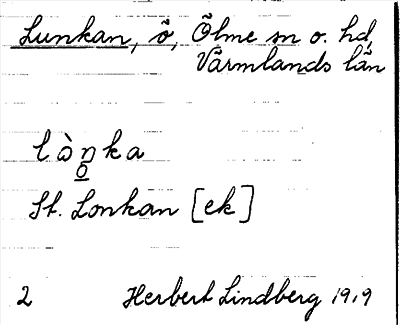 Lunkan, ö, Ölme sn o. hd,
Värmlands län
lòŋka
o
St. Lonkan [ek]
2 Herbert Lindberg 1919